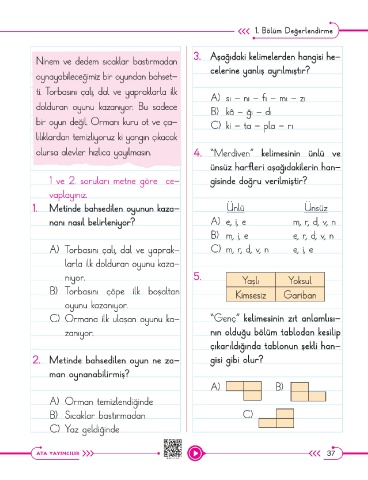 1. Bölüm Değerlendirme
Ninem ve dedem sıcaklar bastırmadan
oynayabileceğimiz bir oyundan bahset-
ti. Torbasını çalı, dal ve yapraklarla ilk
dolduran oyunu kazanıyor. Bu sadece
bir oyun değil. Ormanı kuru ot ve ça-
lılıklardan temizliyoruz ki yangın çıkacak
olursa alevler hızlıca yayılmasın.
1 ve 2. soruları metne göre ce-
vaplayınız.
1. Metinde bahsedilen oyunun kaza-
nanı nasıl belirleniyor?
A) Torbasını çalı, dal ve yaprak-
larla ilk dolduran oyunu kaza-
nıyor.
B) Torbasını çöpe ilk boşaltan
oyunu kazanıyor.
C) Ormana ilk ulaşan oyunu ka-
zanıyor.
2. Metinde bahsedilen oyun ne za-
man oynanabilirmiş?
A) Orman temizlendiğinde
B) Sıcaklar bastırmadan
C) Yaz geldiğinde
3. Aşağıdaki kelimelerden hangisi he-
celerine yanlış ayrılmıştır?
A) sı - nı - fı - mı - zı
B) kâ - ğı - dı
C) ki - ta - pla - rı
4. "Merdiven" kelimesinin ünlü ve
ünsüz harfleri aşağıdakilerin han-
gisinde doğru verilmiştir?
Ünlü Ünsüz
A) e, i, e m, r, d, v, n
B) m, i, e e, r, d, v, n
C) m, r, d, v, n e, i, e
5.
Yaşlı Yoksul
Kimsesiz Gariban
"Genç" kelimesinin zıt anlamlısı-
nın olduğu bölüm tablodan kesilip
çıkarıldığında tablonun şekli han-
gisi gibi olur?
A) B)
C)
ATA YAYINCILIK
37